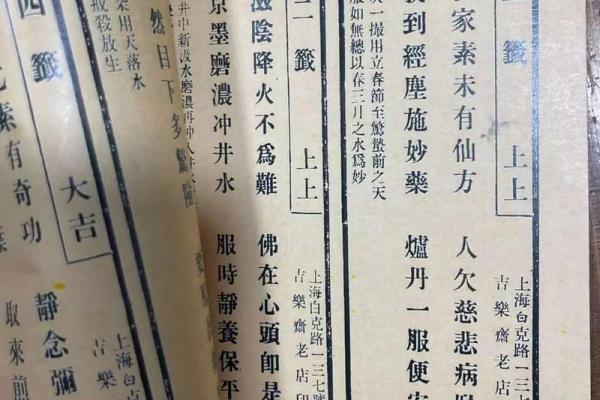 籤 上上
上海白克路一三七
吉樂齋老店
家素未有仙方 人欠慈悲病
到經塵施妙藥 爐丹一服便
一撮用立春節至驚蟄前之天
服如無總以春三月之水爲妙
二籤 上上
上海白克路一三七號
吉樂齋老店印
滋陰降火不爲難 佛在心頭卽是
京墨磨濃冲井水 服時靜養保平
井中新汲水磨濃再冲入井水
然目下多
用天落水
戒殺放生
四籤 大吉
上海白克
吉樂
素有奇功 靜念彌
取來煎